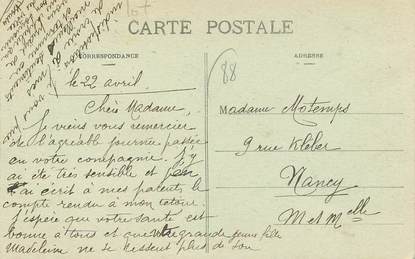 107
CARTE POSTALE
CORRESPONDANCE
ADRESSE
88
le 22 avril.
Chère Madame,
Je viens vous remercier
de l'agréable journée passée
en votre compagnie. J'y
ai été très sensible et
ai écrit à mes parents le
compte rendu à mon retour.
J'espère que votre santé est
bonne à tous et que votre grande jeune fille
Madeleine ne se ressent plus de son
Madame Motemps
9 rue Kléber
Nancy
M et Melle